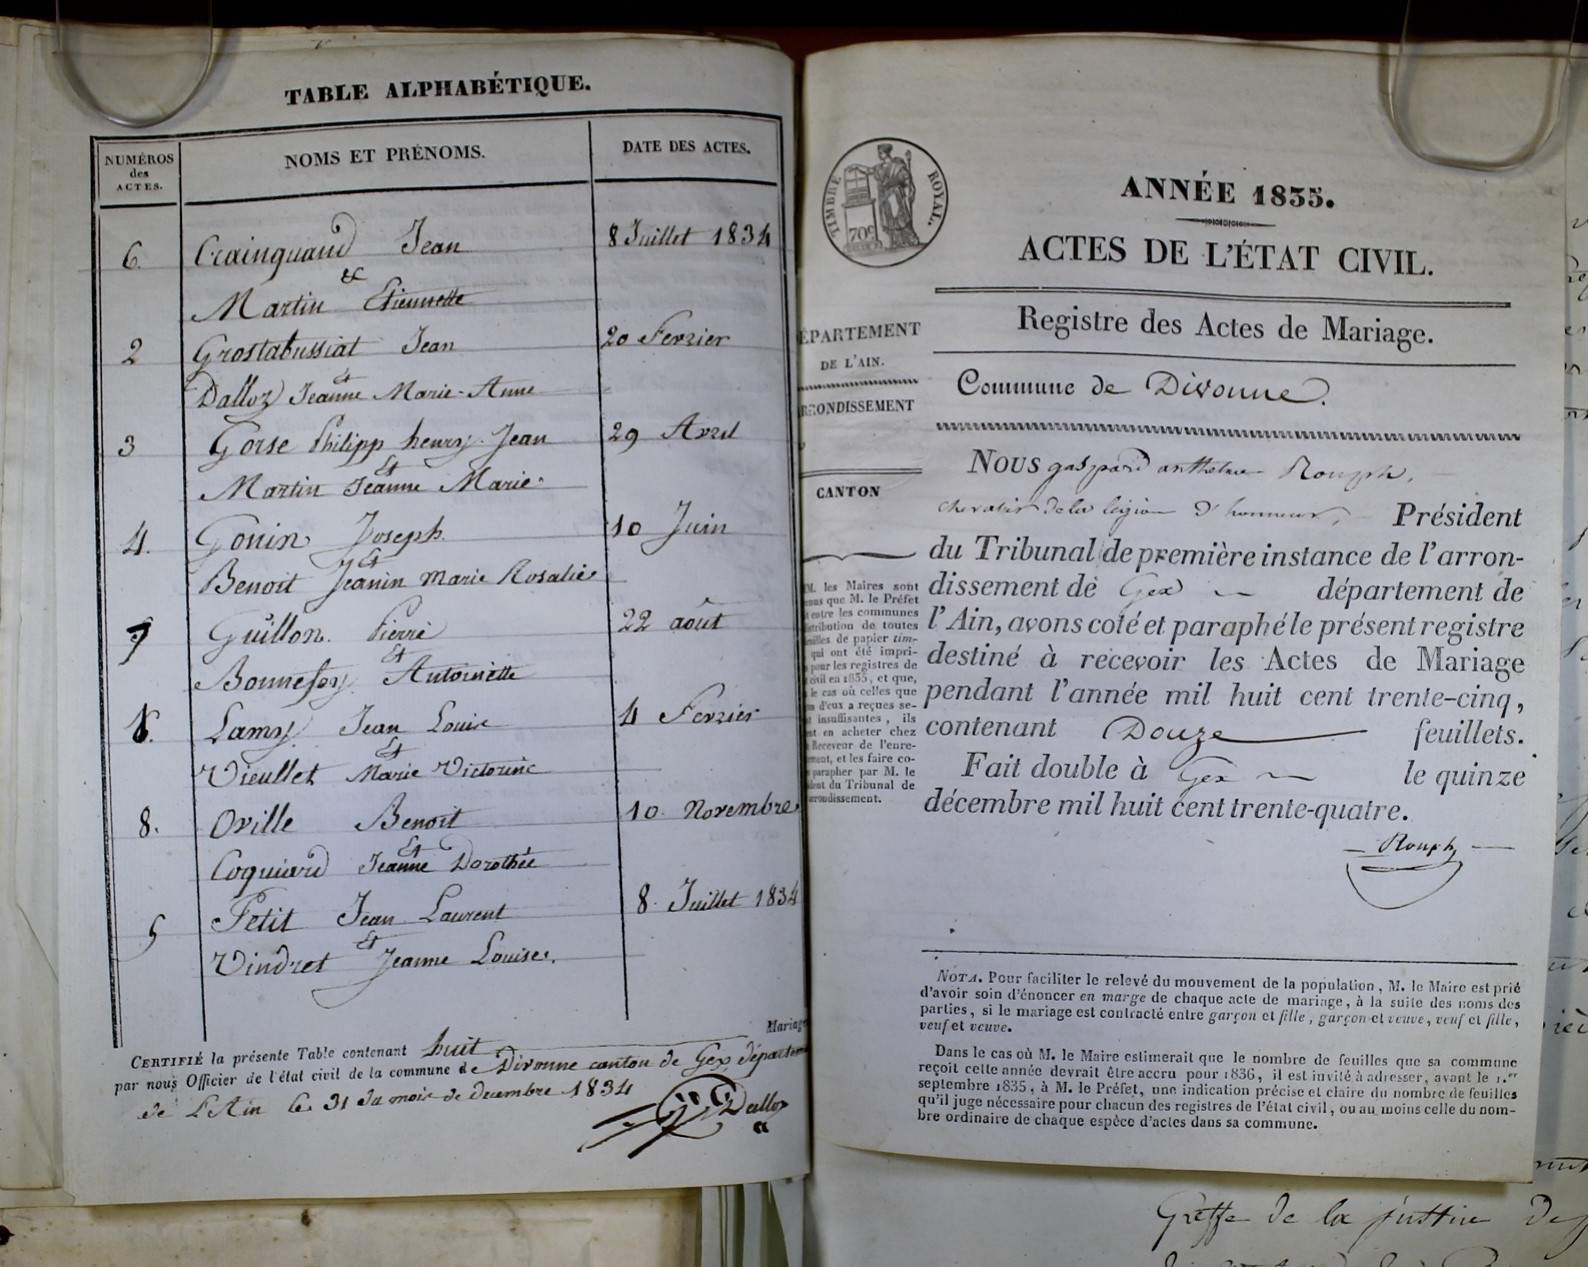 TABLE ALPHABÉTIQUE.
NUMÉROS des ACTES. NOMS ET PRÉNOMS. DATE DES ACTES.
6. Crainquand Jean 8 Juillet 1834
&
Martin Etiennette
2 Grostabussiat Jean 20 Fevrier
et
Dalloz Jeanne Marie-Anne
3 Gorse Philipp henry Jean 29 Avril
et
Martin Jeanne Marie
4. Gonin Joseph 10 Juin
et
Benoit Jeanin Marie Rosalie
7 Guillon Pierre 22 août
et
Bonnefoy Antoinette
1. Lamy Jean Louis 4 Fevrier
et
Vieullet Marie Victorine
8. Oville Benoit 10 Novembre
et
Coquiard Jeanne Dorothée
5 Petit Jean Laurent 8 Juillet 1834
et
Vindret Jeanne Louise.
CERTIFIÉ la présente Table contenant huit Mariage
par nous Officier de l'état civil de la commune de Divonne canton de Gex département
de L'Ain le 31 du mois de decembre 1834
Dalloz
a
TIMBRE ROYAL.
70c
ANNÉE 1835.
ACTES DE L'ÉTAT CIVIL.
Registre des Actes de Mariage.
ÉPARTEMENT
DE L'AIN.
RONDISSEMENT
CANTON
M. les Maires sont
que M. le Préfet
entre les communes
tribution de toutes
de papier tim-
qui ont été impri-
pour les registres de
civil en 1835, et que,
le cas où celles que
d'eux a reçues se-
insuffisantes, ils
en acheter chez
Receveur de l'enre-
et les faire co-
parapher par M. le
du Tribunal de
rondissement.
Commune de Divonne.
NOUS gaspard anthelme Rouph,
chevalier de la légion d'honneur, Président
du Tribunal de première instance de l'arron-
dissement de Gex département de
l'Ain, avons coté et paraphé le présent registre
destiné à recevoir les Actes de Mariage
pendant l'année mil huit cent trente-cinq,
contenant Douze feuillets.
Fait double à Gex le quinze
décembre mil huit cent trente-quatre.
Rouph
NOTA. Pour faciliter le relevé du mouvement de la population, M. le Maire est prié
d'avoir soin d'énoncer en marge de chaque acte de mariage, à la suite des noms des
parties, si le mariage est contracté entre garçon et fille, garçon et veuve, veuf et fille,
veuf et veuve.
Dans le cas où M. le Maire estimerait que le nombre de feuilles que sa commune
reçoit cette année devrait être accru pour 1836, il est invité à adresser, avant le 1.er
septembre 1835, à M. le Préfet, une indication précise et claire du nombre de feuilles
qu'il juge nécessaire pour chacun des registres de l'état civil, ou au moins celle du nom-
bre ordinaire de chaque espèce d'actes dans sa commune.
Greffe de la justice de